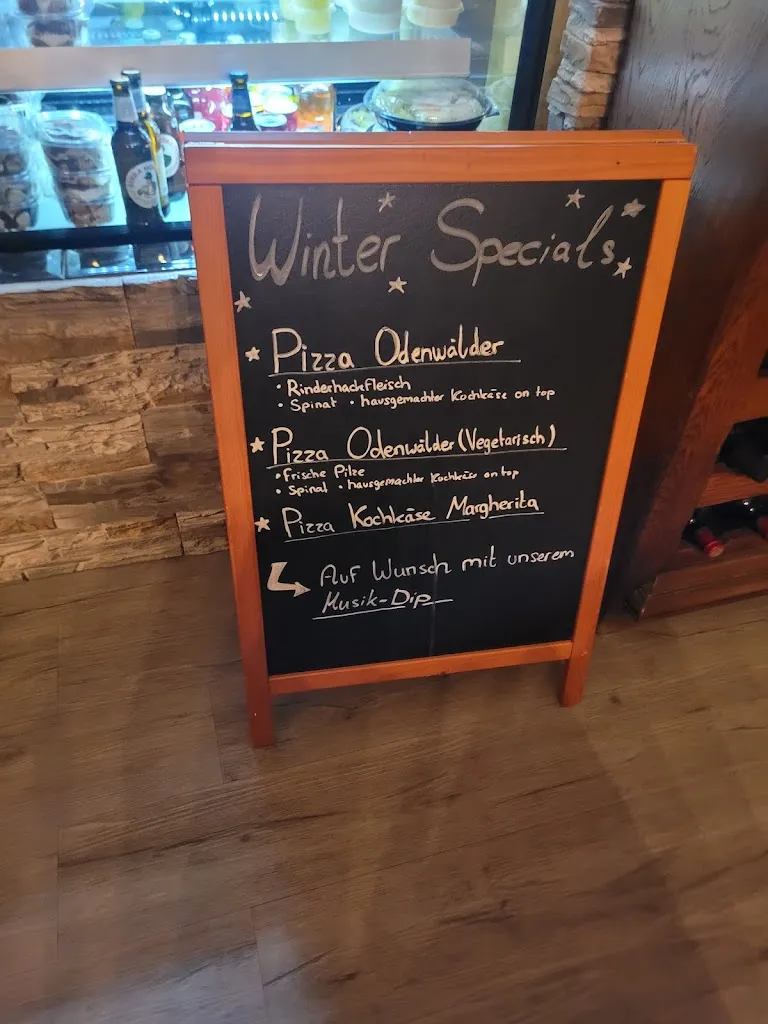 Winter Specials
Pizza Odenwälder
• Rinderhackfleisch
• Spinat • hausgemachter Kochkäse on top
Pizza Odenwälder (Vegetarisch)
• Frische Pilze
• Spinat • hausgemachter Kochkäse on top
Pizza Kochkäse Margherita
Auf Wunsch mit unserem
Musik-Dip